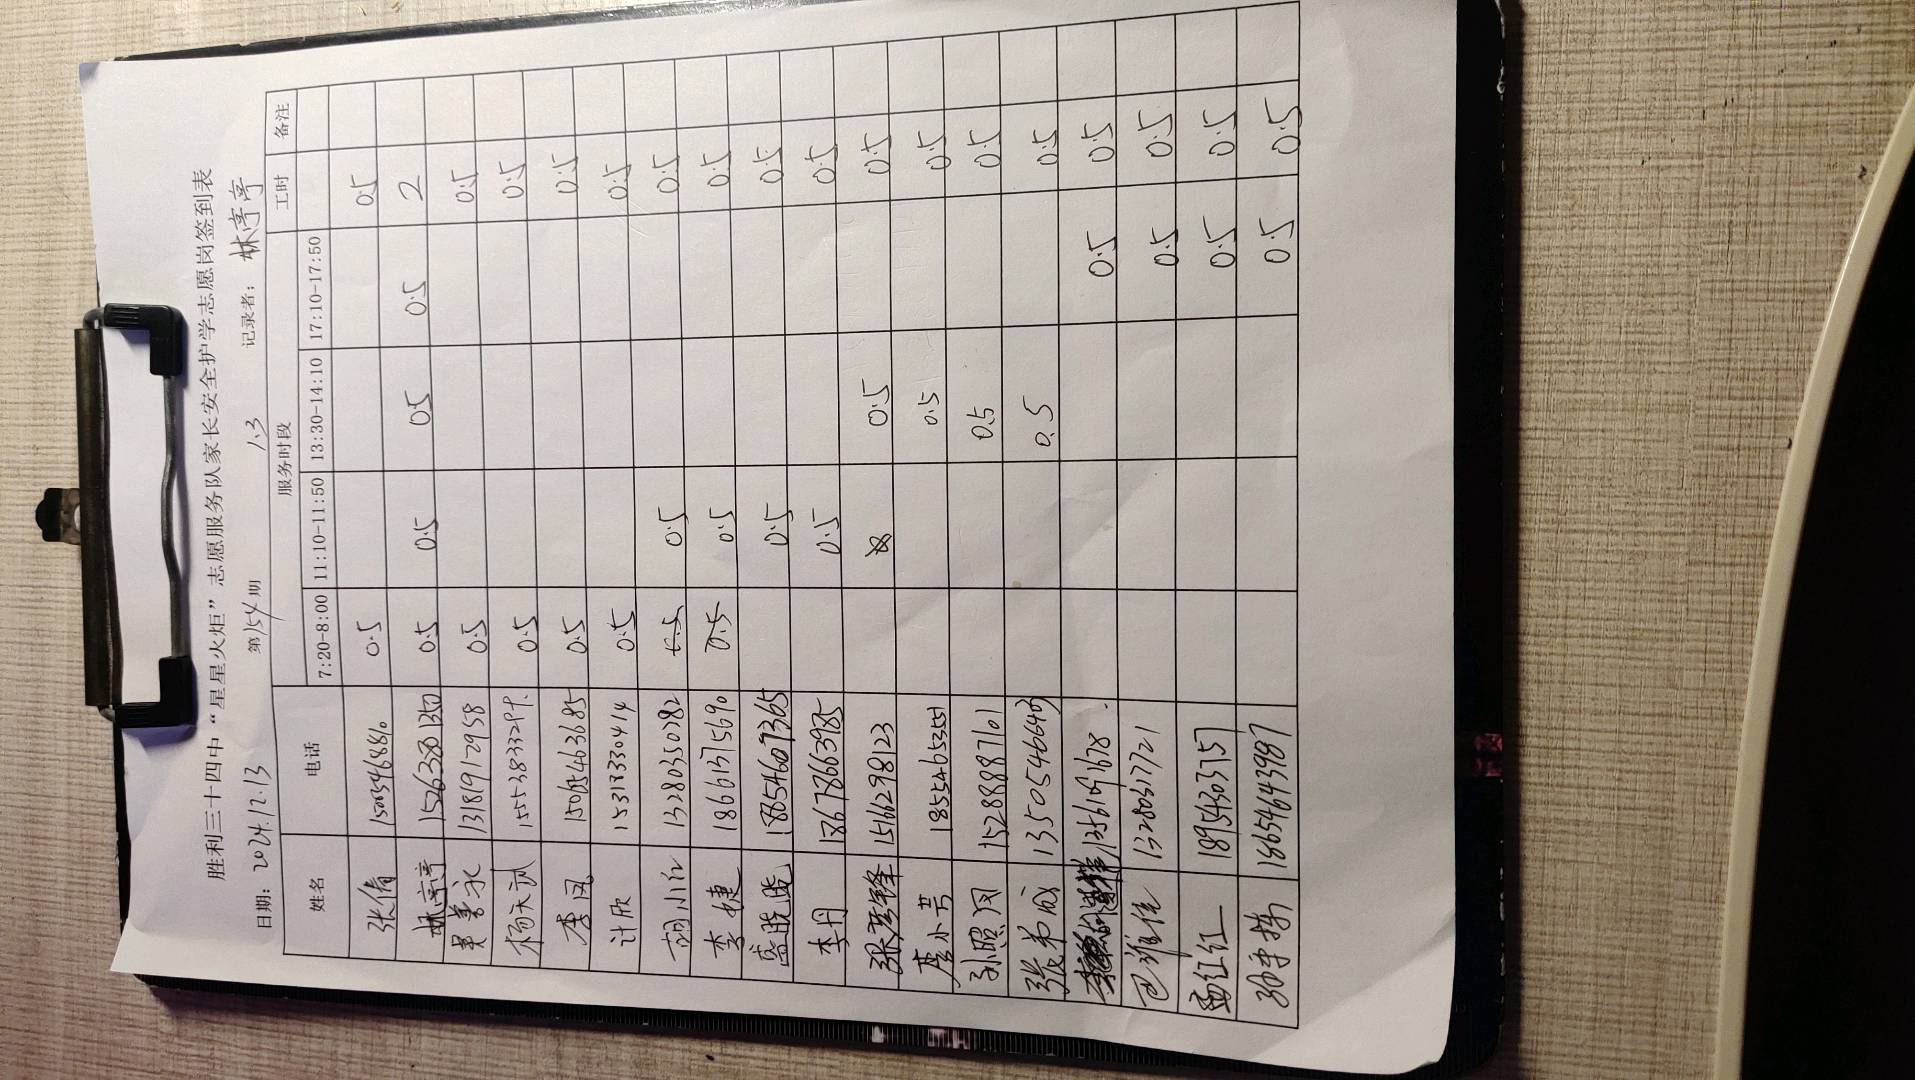 胜利三十四中“星星火炬”志愿服务队家长安全护学志愿岗签到表
日期: 2024.12.13 第154期 1.3 记录者: 林亭亭
姓名 电话 服务时段 工时 备注
7:20-8:00 11:10-11:50 13:30-14:10 17:10-17:50
张倩 15003468816 0.5 0.5
林亭亭 15263801350 0.5 0.5 0.5 0.5 2
吴善永 13181912958 0.5 0.5
杨天武 0.5 0.5
李凤 1505463685 0.5 0.5
计欣 15313330414 0.5 0.5
胡小红 13280350182 0.5 0.5 0.5
李捷 18661375690 0.5 0.5 0.5
盛晓晓 18854607365 0.5 0.5
李丹 18678663985 0.5 0.5
张彦锋 15166298123 0.5 0.5
唐小芳 18554653551 0.5 0.5
孙照凤 15288887101 0.5 0.5
张弟成 0.5 0.5
0.5 0.5
13280317721 0.5 0.5
红红 18954303157 0.5 0.5
18654643987 0.5 0.5